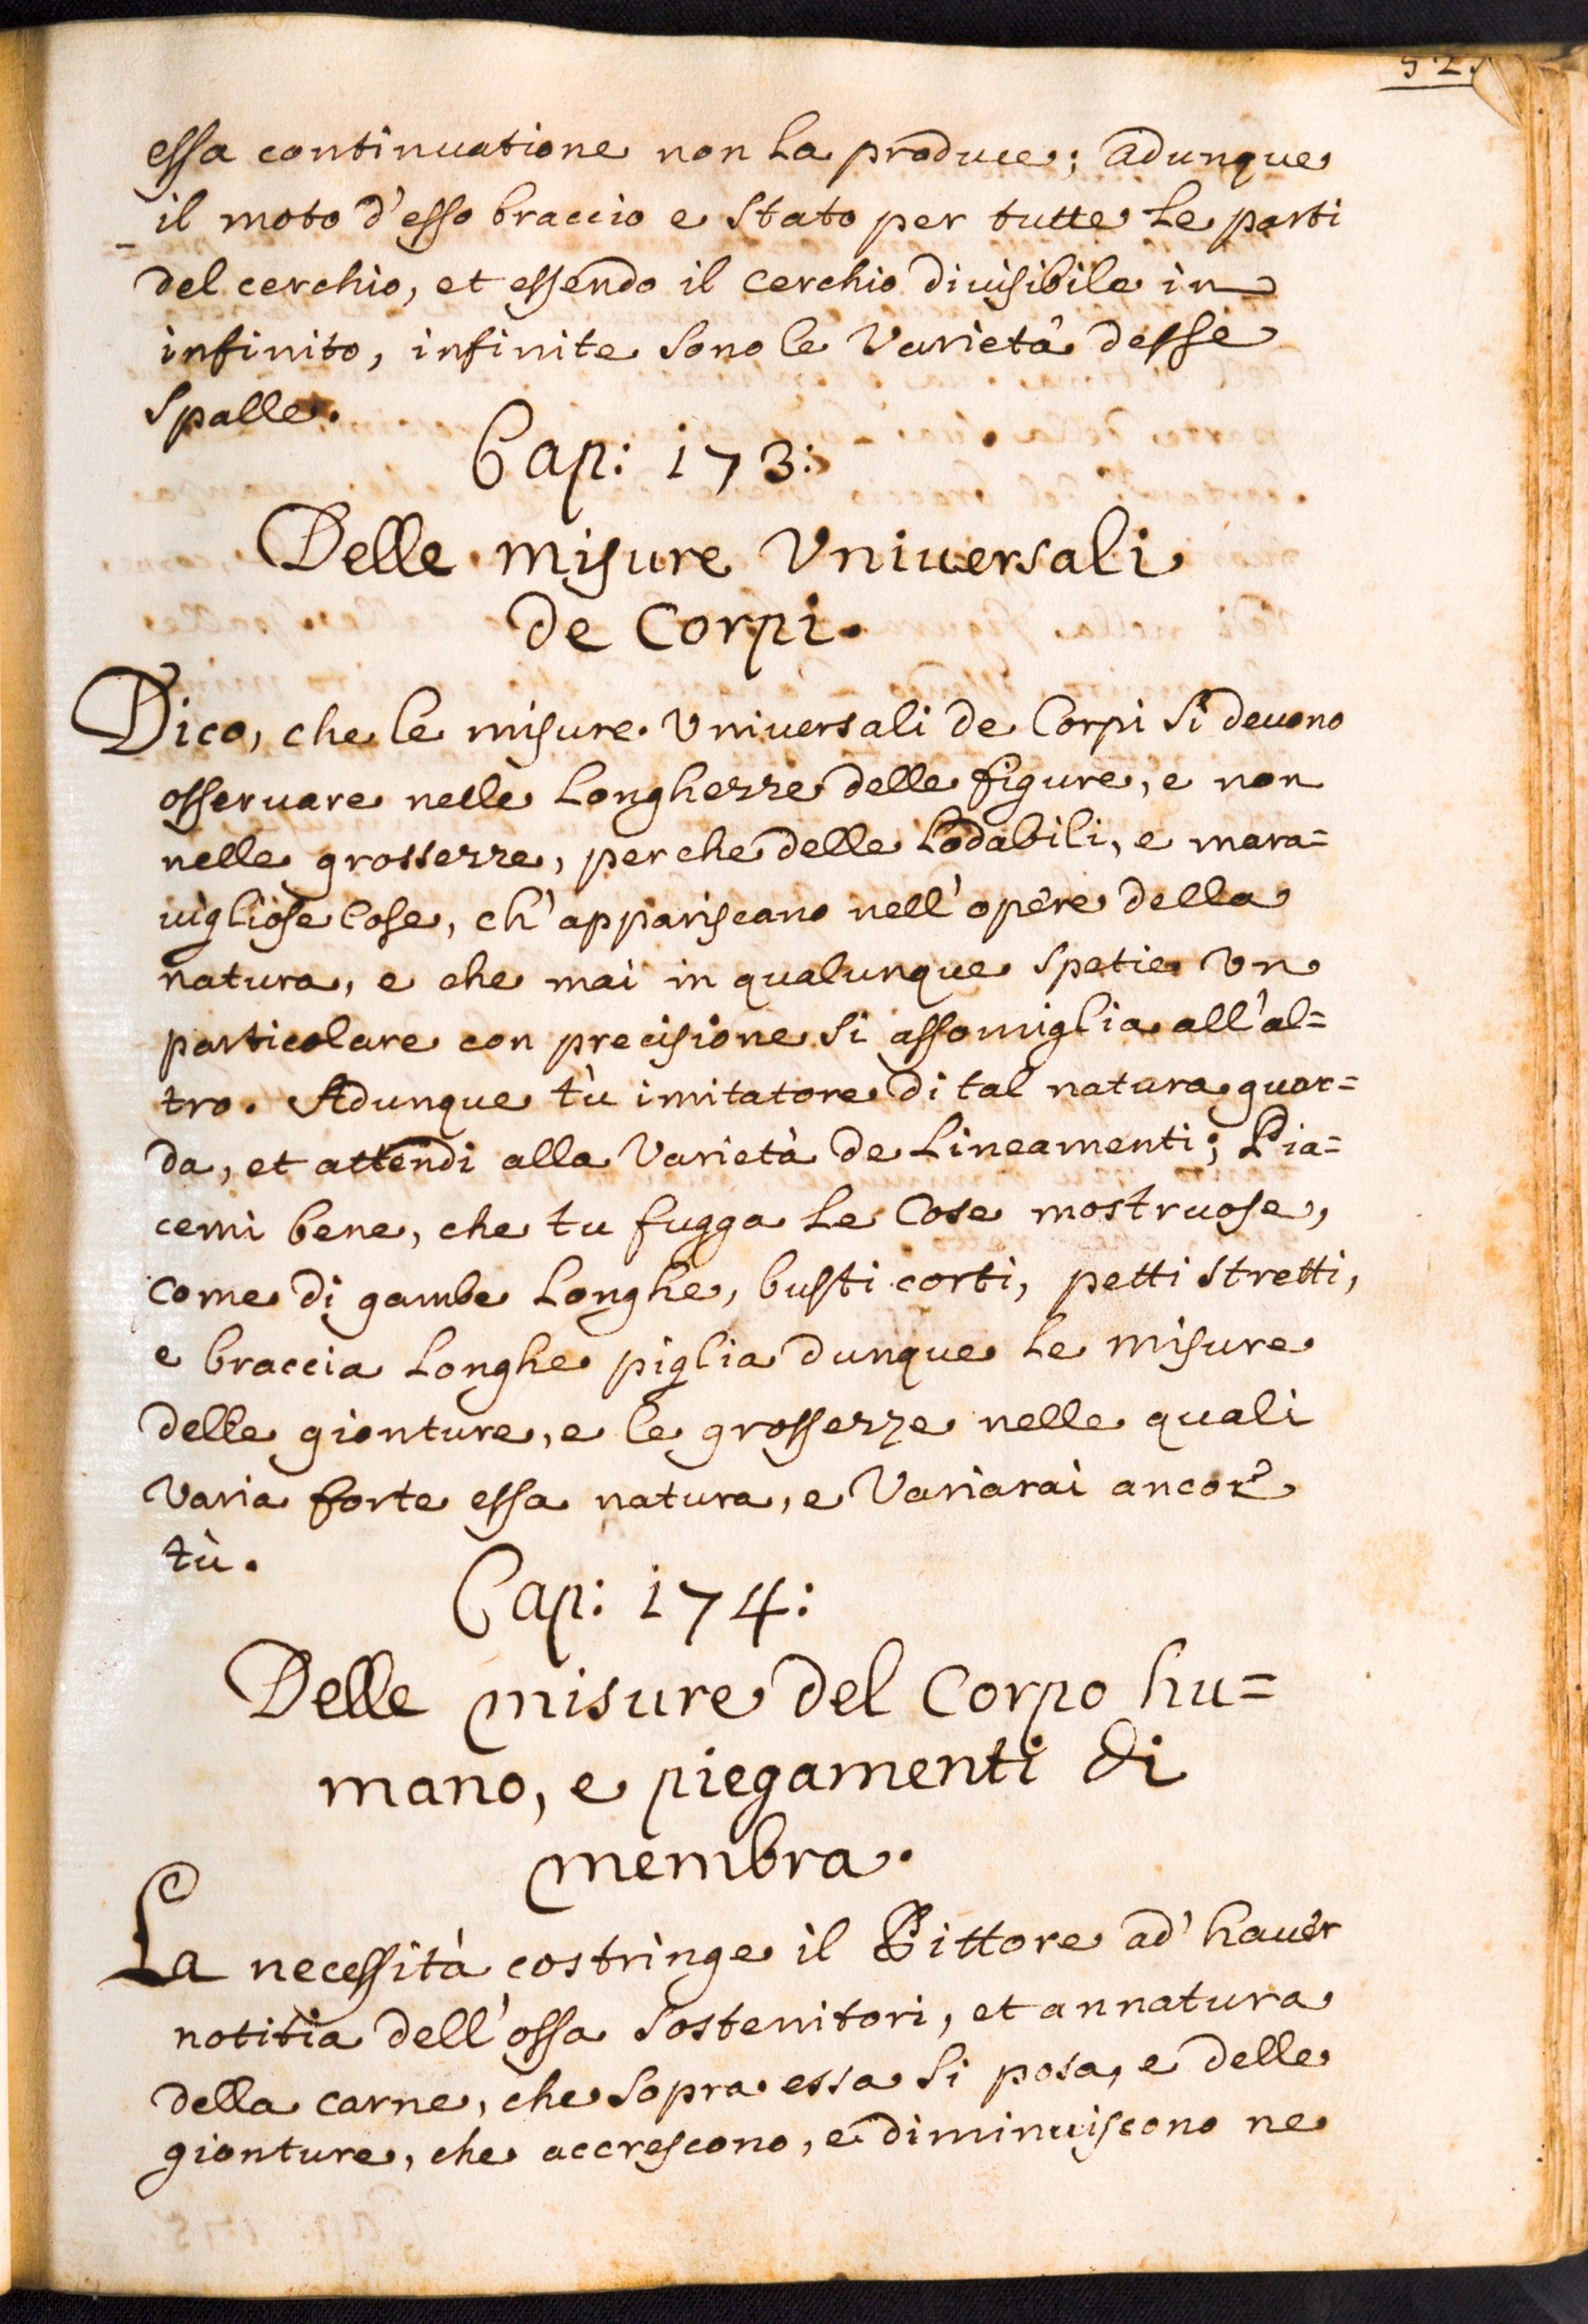 52.
essa continuatione non la produce; adunque
il moto d'esso braccio e stato per tutte le parti
del cerchio, et essendo il cerchio diuisibile in
infinito, infinite sono le Varietà desse
spalle.
Cap: 173:
Delle misure Vniuersali
de Corpi.
Dico, che le misure Vniuersali de Corpi si deuono
osseruare nelle longhezze delle figure, e non
nelle grossezze, perche delle lodabili, e mara=
uigliose Cose, ch'appariscano nell'opere della
natura, e che mai in qualunque spetie Vn
particolare con precisione si assomiglia all'al=
tro. Adunque tù imitatore di tal natura guar=
da, et attendi alla Varietà de Lineamenti; Pia=
cemi bene, che tu fugga le Cose mostruose,
come di gambe longhe, busti corti, petti stretti,
e braccia longhe piglia dunque le misure
delle gionture, e le grossezze nelle quali
Varia forte essa natura, e Variarai ancor
tù.
Cap: 174:
Delle misure del Corpo hu=
mano, e piegamenti di
membra.
La necessità costringe il Pittore ad' hauer
notitia dell'ossa sostenitori, et annatura
della carne, che sopra essa si posa, e delle
gionture, che accrescono, e diminuiscono ne